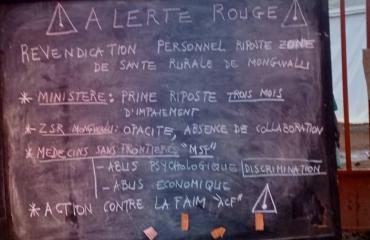 ALERTE ROUGE
REVENDICATION PERSONNEL RIPOSTE ZONE
DE SANTE RURALE DE MONGWALU
* MINISTERE: PRIME RIPOSTE TROIS MOIS
D'IMPAIEMENT
* ZSR MONGWALU: OPACITE, ABSENCE DE COLLABORATION
* MEDECINS SANS FRONTIERES "MSF"
- ABUS PSYCHOLOGIQUE DISCRIMINATION
- ABUS ECONOMIQUE
* ACTION CONTRE LA FAIM "ACF"